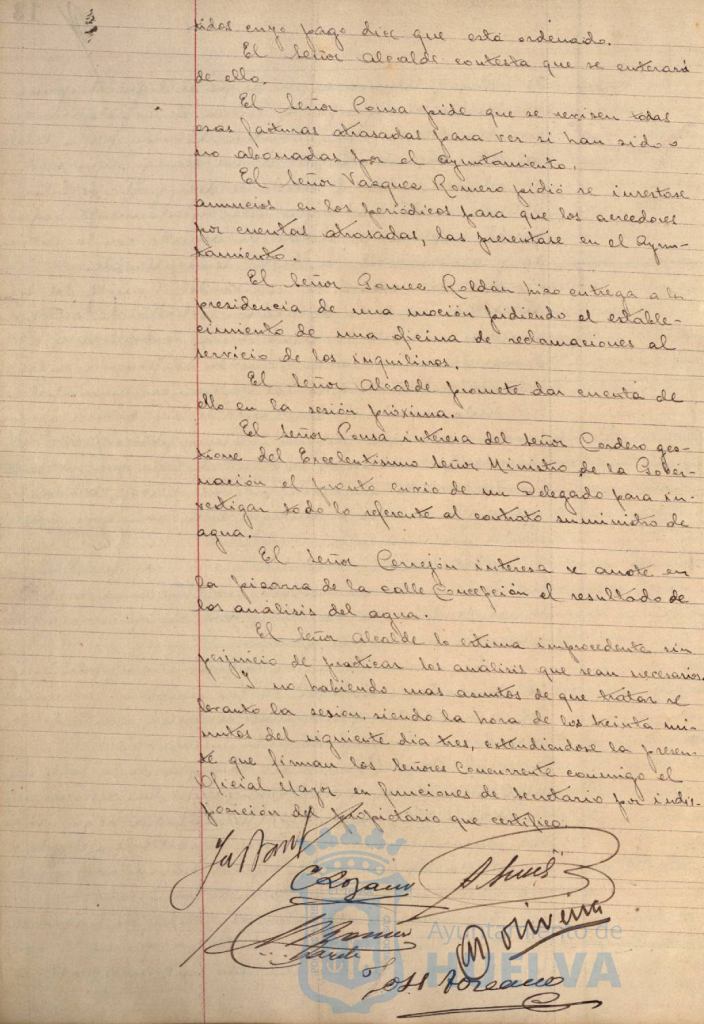 tidas cuyo pago dice que está ordenado.
El Señor Alcalde contesta que se enterará
de ello.
El Señor Ponsa pide que se revisen todas
esas facturas atrasadas para ver si han sido o
no abonadas por el ayuntamiento.
El Señor Vasquez Romero pidió se insertase
anuncios en los periódicos para que los acreedores
por cuentas atrasadas, las presentase en el Ayun-
tamiento.
El Señor Gomez Roldán hizo entrega a la
presidencia de una moción pidiendo el estable-
cimiento de una oficina de reclamaciones al
servicio de los inquilinos.
El Señor Alcalde promete dar cuenta de
ello en la sesión próxima.
El Señor Ponsa interesa del Señor Cordero ges-
tione del Excelentismo Señor Ministro de la Gober-
nación el pronto envio de un Delegado para in-
vestigar todo lo referente al contrato suministro de
agua.
El Señor Cerrejón interesa se anote en
la pizarra de la calle Concepción el resultado de
los análisis del agua.
El Señor Alcalde lo estima improcedente sin
perjuicio de practicar los análisis que sean necesarios.
Y no habiendo mas asuntos de que tratar se
levanto la sesion, siendo la hora de los treinta mi-
nutos del siguiente dia tres, extendiendose la presen-
te que firman los Señores Concurrente conmigo el
Oficial Mayor en funciones de Secretario por indis-
posición del propietario que certifico.
C Lozano
Oliveira
José
Ayuntamiento de
HUELVA